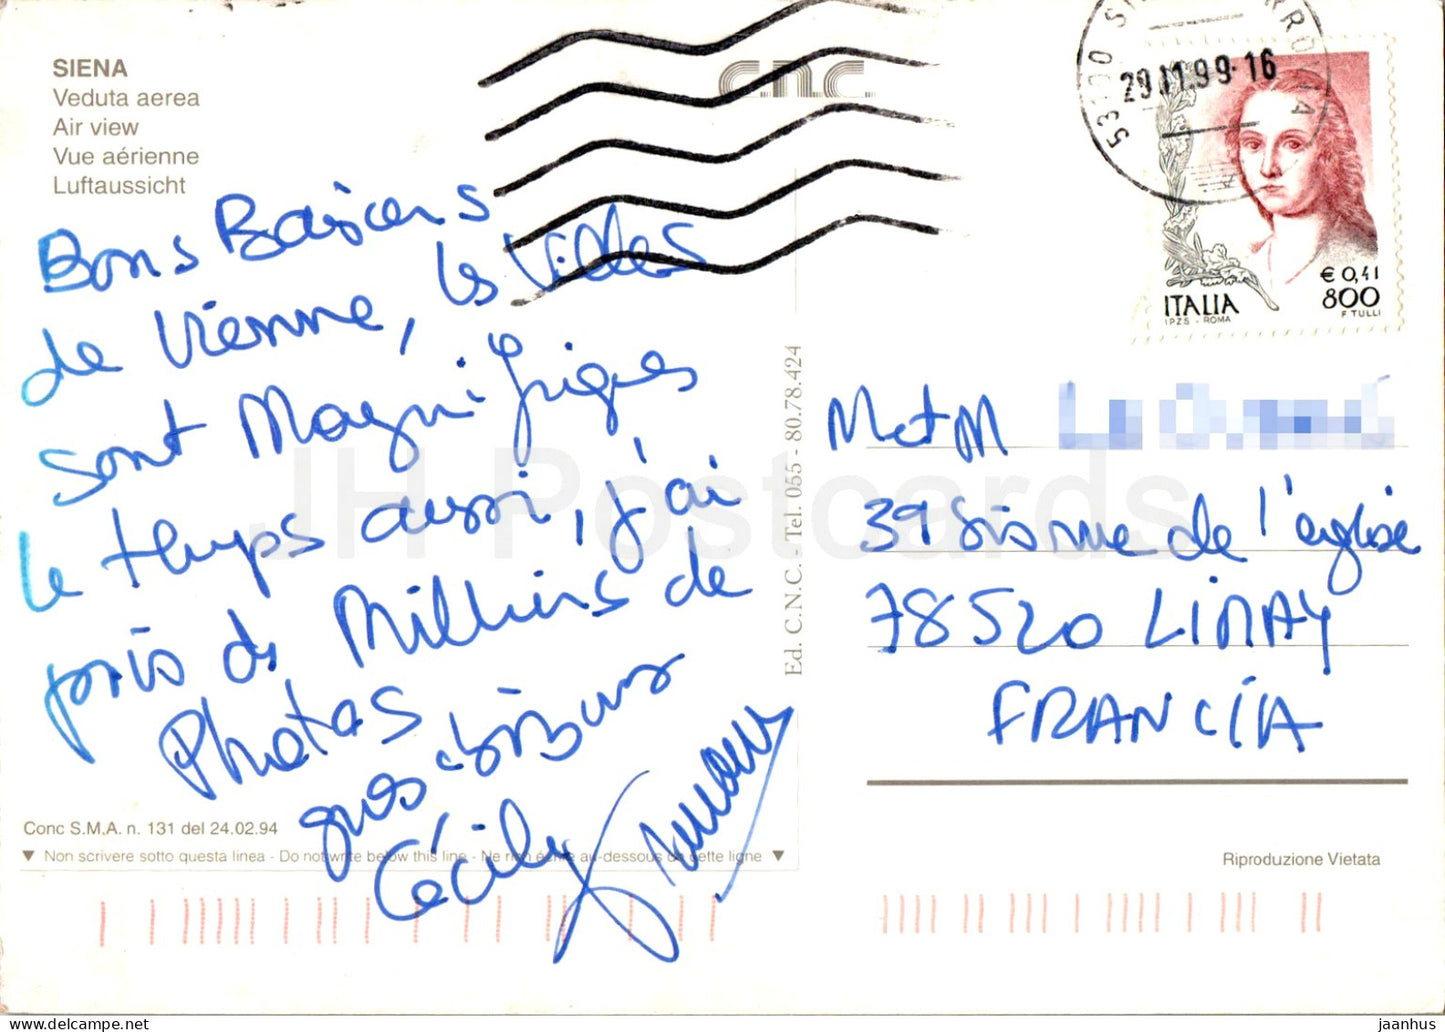 SIENA
Veduta aerea
Air view
Vue aérienne
Luftaussicht
C.N.C.
29.11.99-16
€ 0,41
ITALIA 800
I.P.Z.S. - ROMA F. TULLI
Bons Baisers
de Vienne, les Villes
sont Magnifiques
le temps aussi, j'ai
pris des Milliers de
Photos
gros bisous
Cécily
Ed. C.N.C. - Tel. 055 - 80.78.424
M et M
39 de l'église
78520 LIMAY
FRANCIA
JH Postcards
Conc S.M.A. n. 131 del 24.02.94
▼ Non scrivere sotto questa linea - Do not write below this line - Ne rien écrire au-dessous de cette ligne ▼
Riproduzione Vietata
jaanhus.com